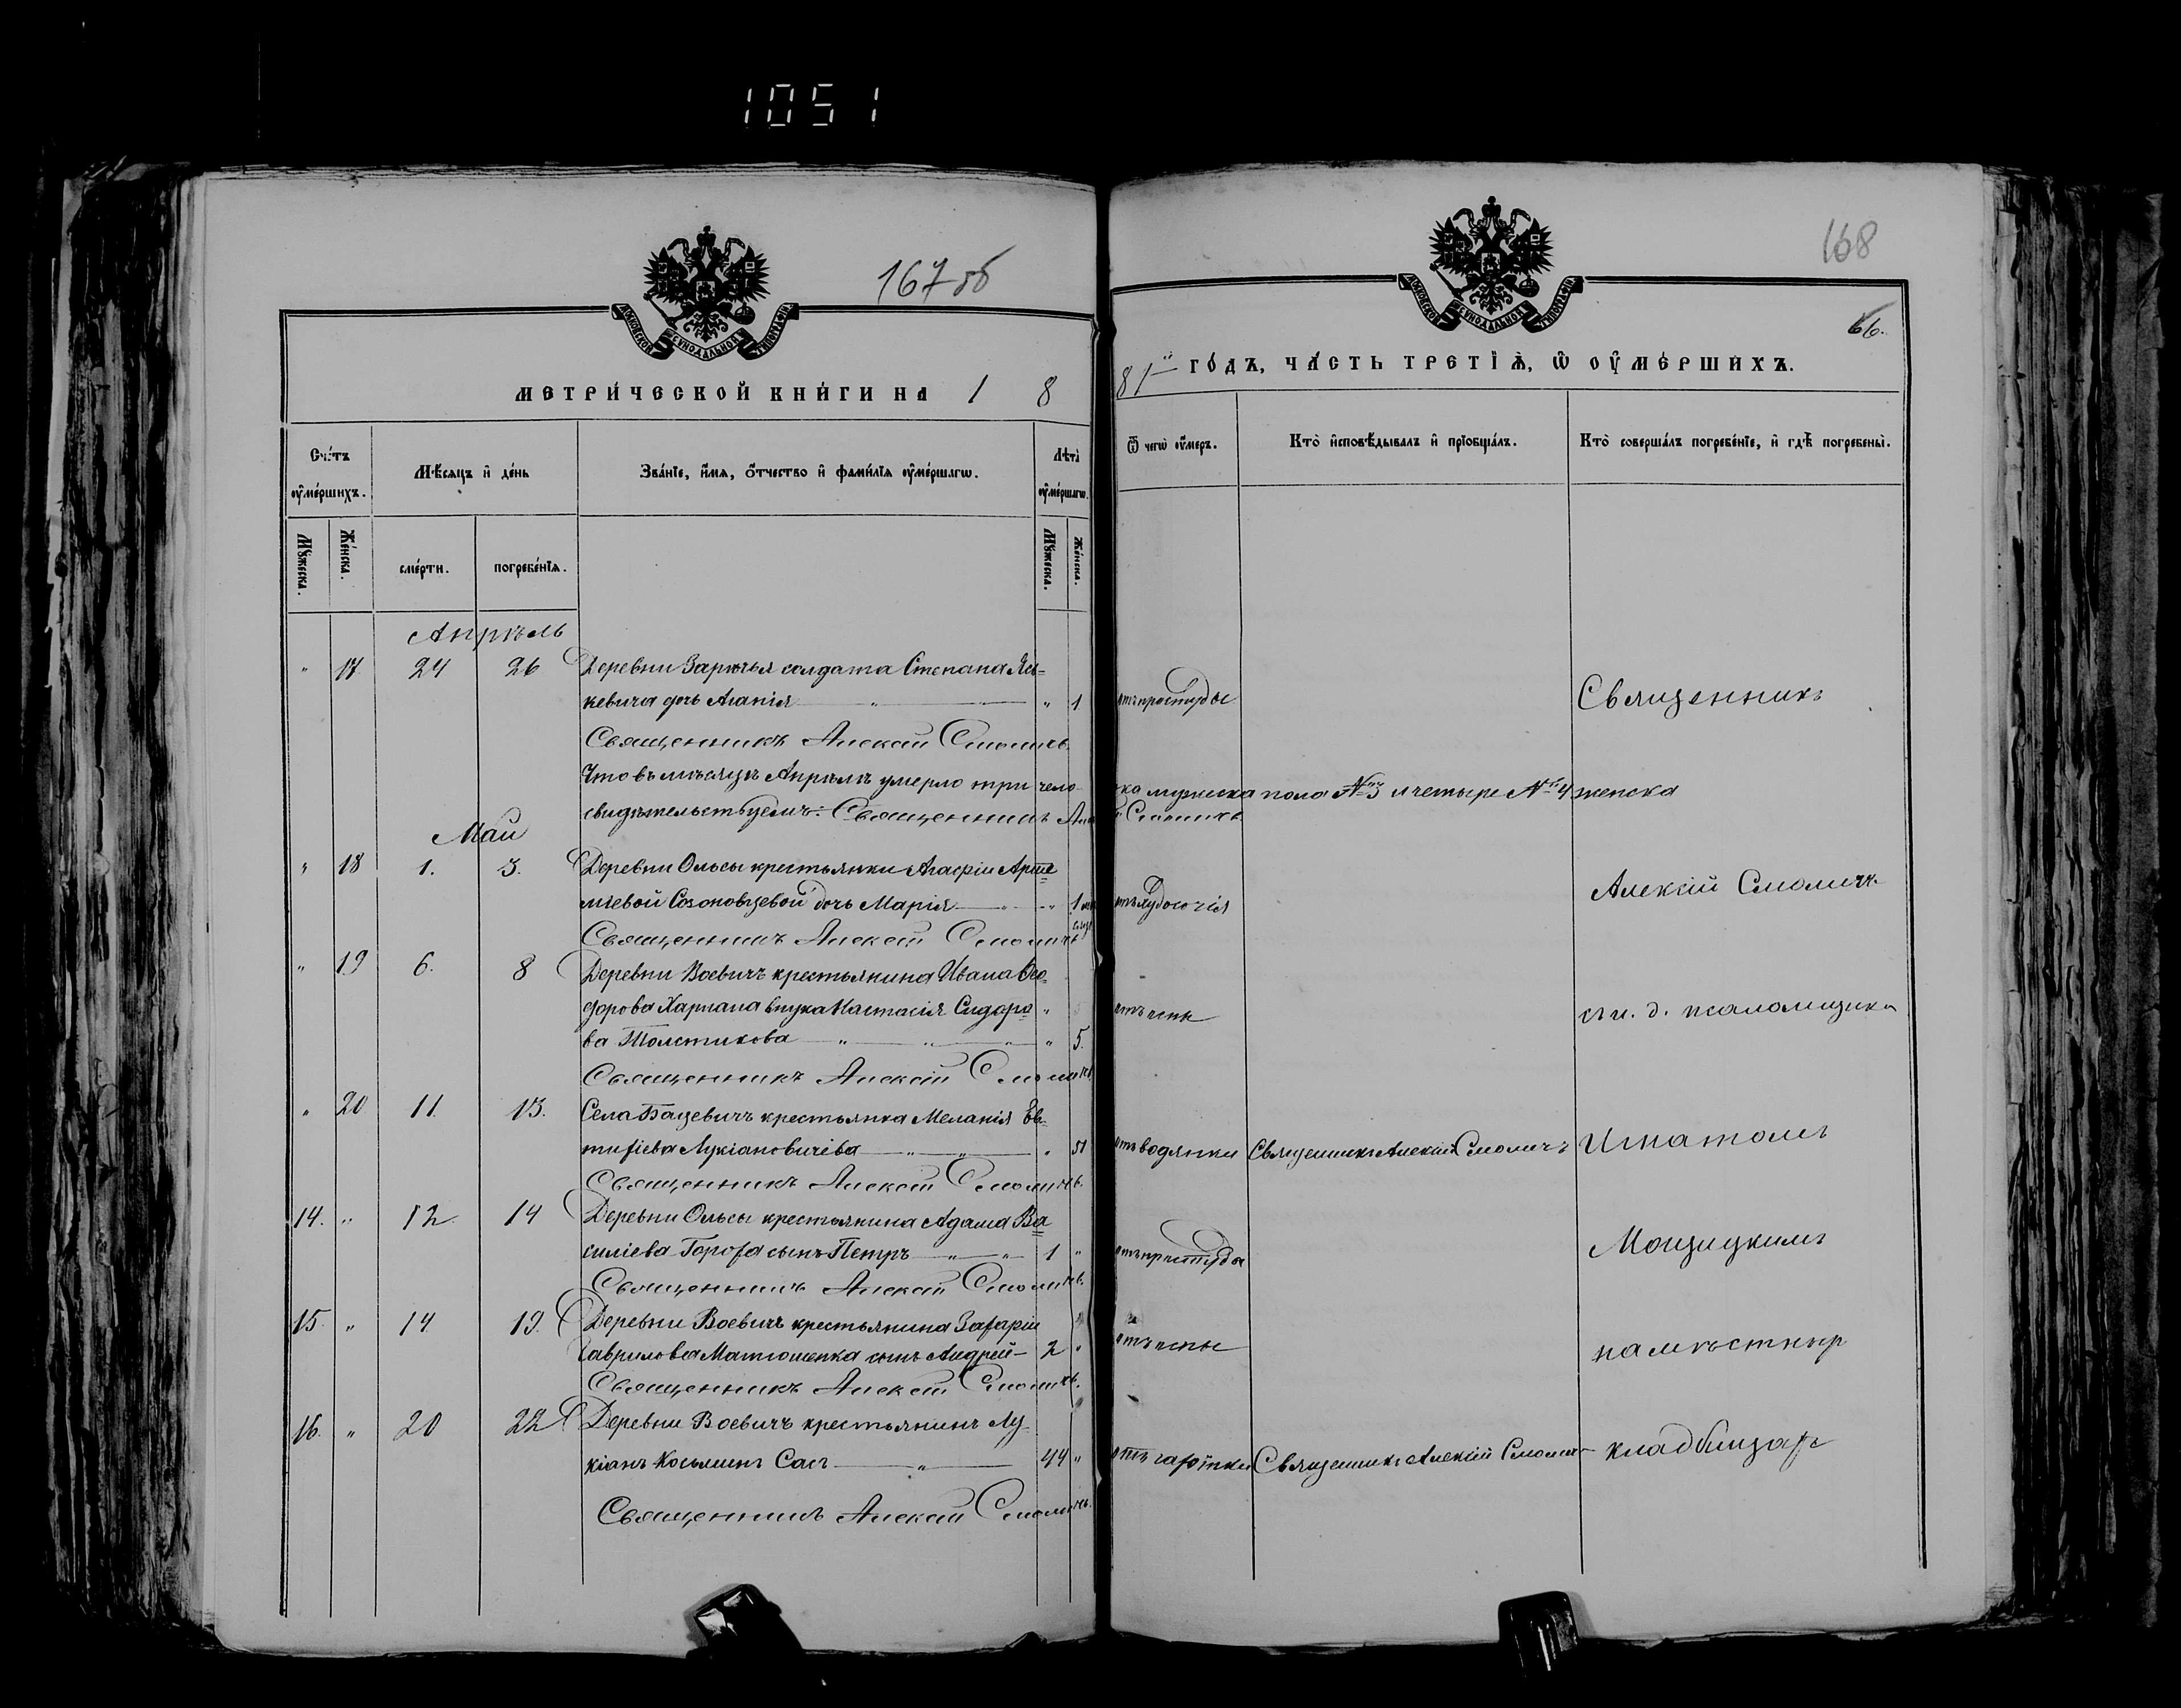 1051
167 об
168
66.
МОСКОВСКОЙ СѴНОДАЛЬНОЙ ТИПОГРАФІИ
МОСКОВСКОЙ СѴНОДАЛЬНОЙ ТИПОГРАФІИ
МЕТРИ́ЧЕСКОЙ КНИ́ГИ НА 1 8
81й ГО́ДЪ, ЧА́СТЬ ТРЕТІѦ, Ѡ ОУМЕ́РШИХЪ.
Сче́тъ оуме́ршихъ.
Мѣсяцъ и де́нь
Зва́ніе, и́мя, о́тчество и фами́лія оуме́ршагѡ.
Лѣта̀ оуме́ршагѡ.
Ѿ чегѡ̀ оу́меръ.
Кто̀ исповѣ́дывалъ и пріобща́лъ.
Кто̀ соверша́лъ погребе́ніе, и гдѣ̀ погребены̀.
Мꙋжеска.
Же́нска.
сме́рти.
погребе́нія.
Мꙋжеска.
Же́нска.
Апрѣль
" 17 24 26 Деревни Зарѣчья солдата Степана Яс-
кевича дочь Агапія " " 1 отъ простуды
Священникъ
Священникъ Алексій Смоличъ.
Что въ мѣсяцѣ Апрѣлѣ умерло три чело-
ка мужеска пола № 3 и четыре № 4 женска
свидѣтельствуемъ: Священникъ Ал
й Смоличъ
Май
" 18 1. 3. Деревни Ольсы крестьянки Агафіи Арте
міевой Созоновцевой дочь Марія " " 1
отъ худосочія
Алексій Смоличъ
Священникъ Алексій Смоличъ
" 19 6. 8 Деревни Воевичъ крестьянина Ивана Ѳео-
дорова Харлапа внука Настасія Сидоро "
отъ оспы
съ и. д. псаломщика
ва Толстикова " " " " 5.
Священникъ Алексій Смоличъ
" 20 11. 13. Села Бацевичъ крестьянка Меланія Ев-
тихіева Лукіановичева " " " 51 отъ водянки Священникъ Алексій Смоличъ
Игнатомъ
Священникъ Алексій Смоличъ.
14. " 12. 14 Деревни Ольсы крестьянина Адама Ва
силіева Гороха сынъ Петръ " " 1 " отъ простуды
Мощицкимъ
Священникъ Алексій Смоличъ.
15. " 14 19. Деревни Воевичъ крестьянина Захаріи
Гаврилова Матюшенка сынъ Андрей 2 " отъ оспы
на мѣстномъ
Священникъ Алексій Смоличъ.
16. " 20 22 Деревни Воевичъ крестьянинъ Лу-
кіанъ Косьминъ Сасъ " 44 " отъ горячки Священникъ Алексій Смоличъ
кладбищахъ
Священникъ Алексій Смоличъ.